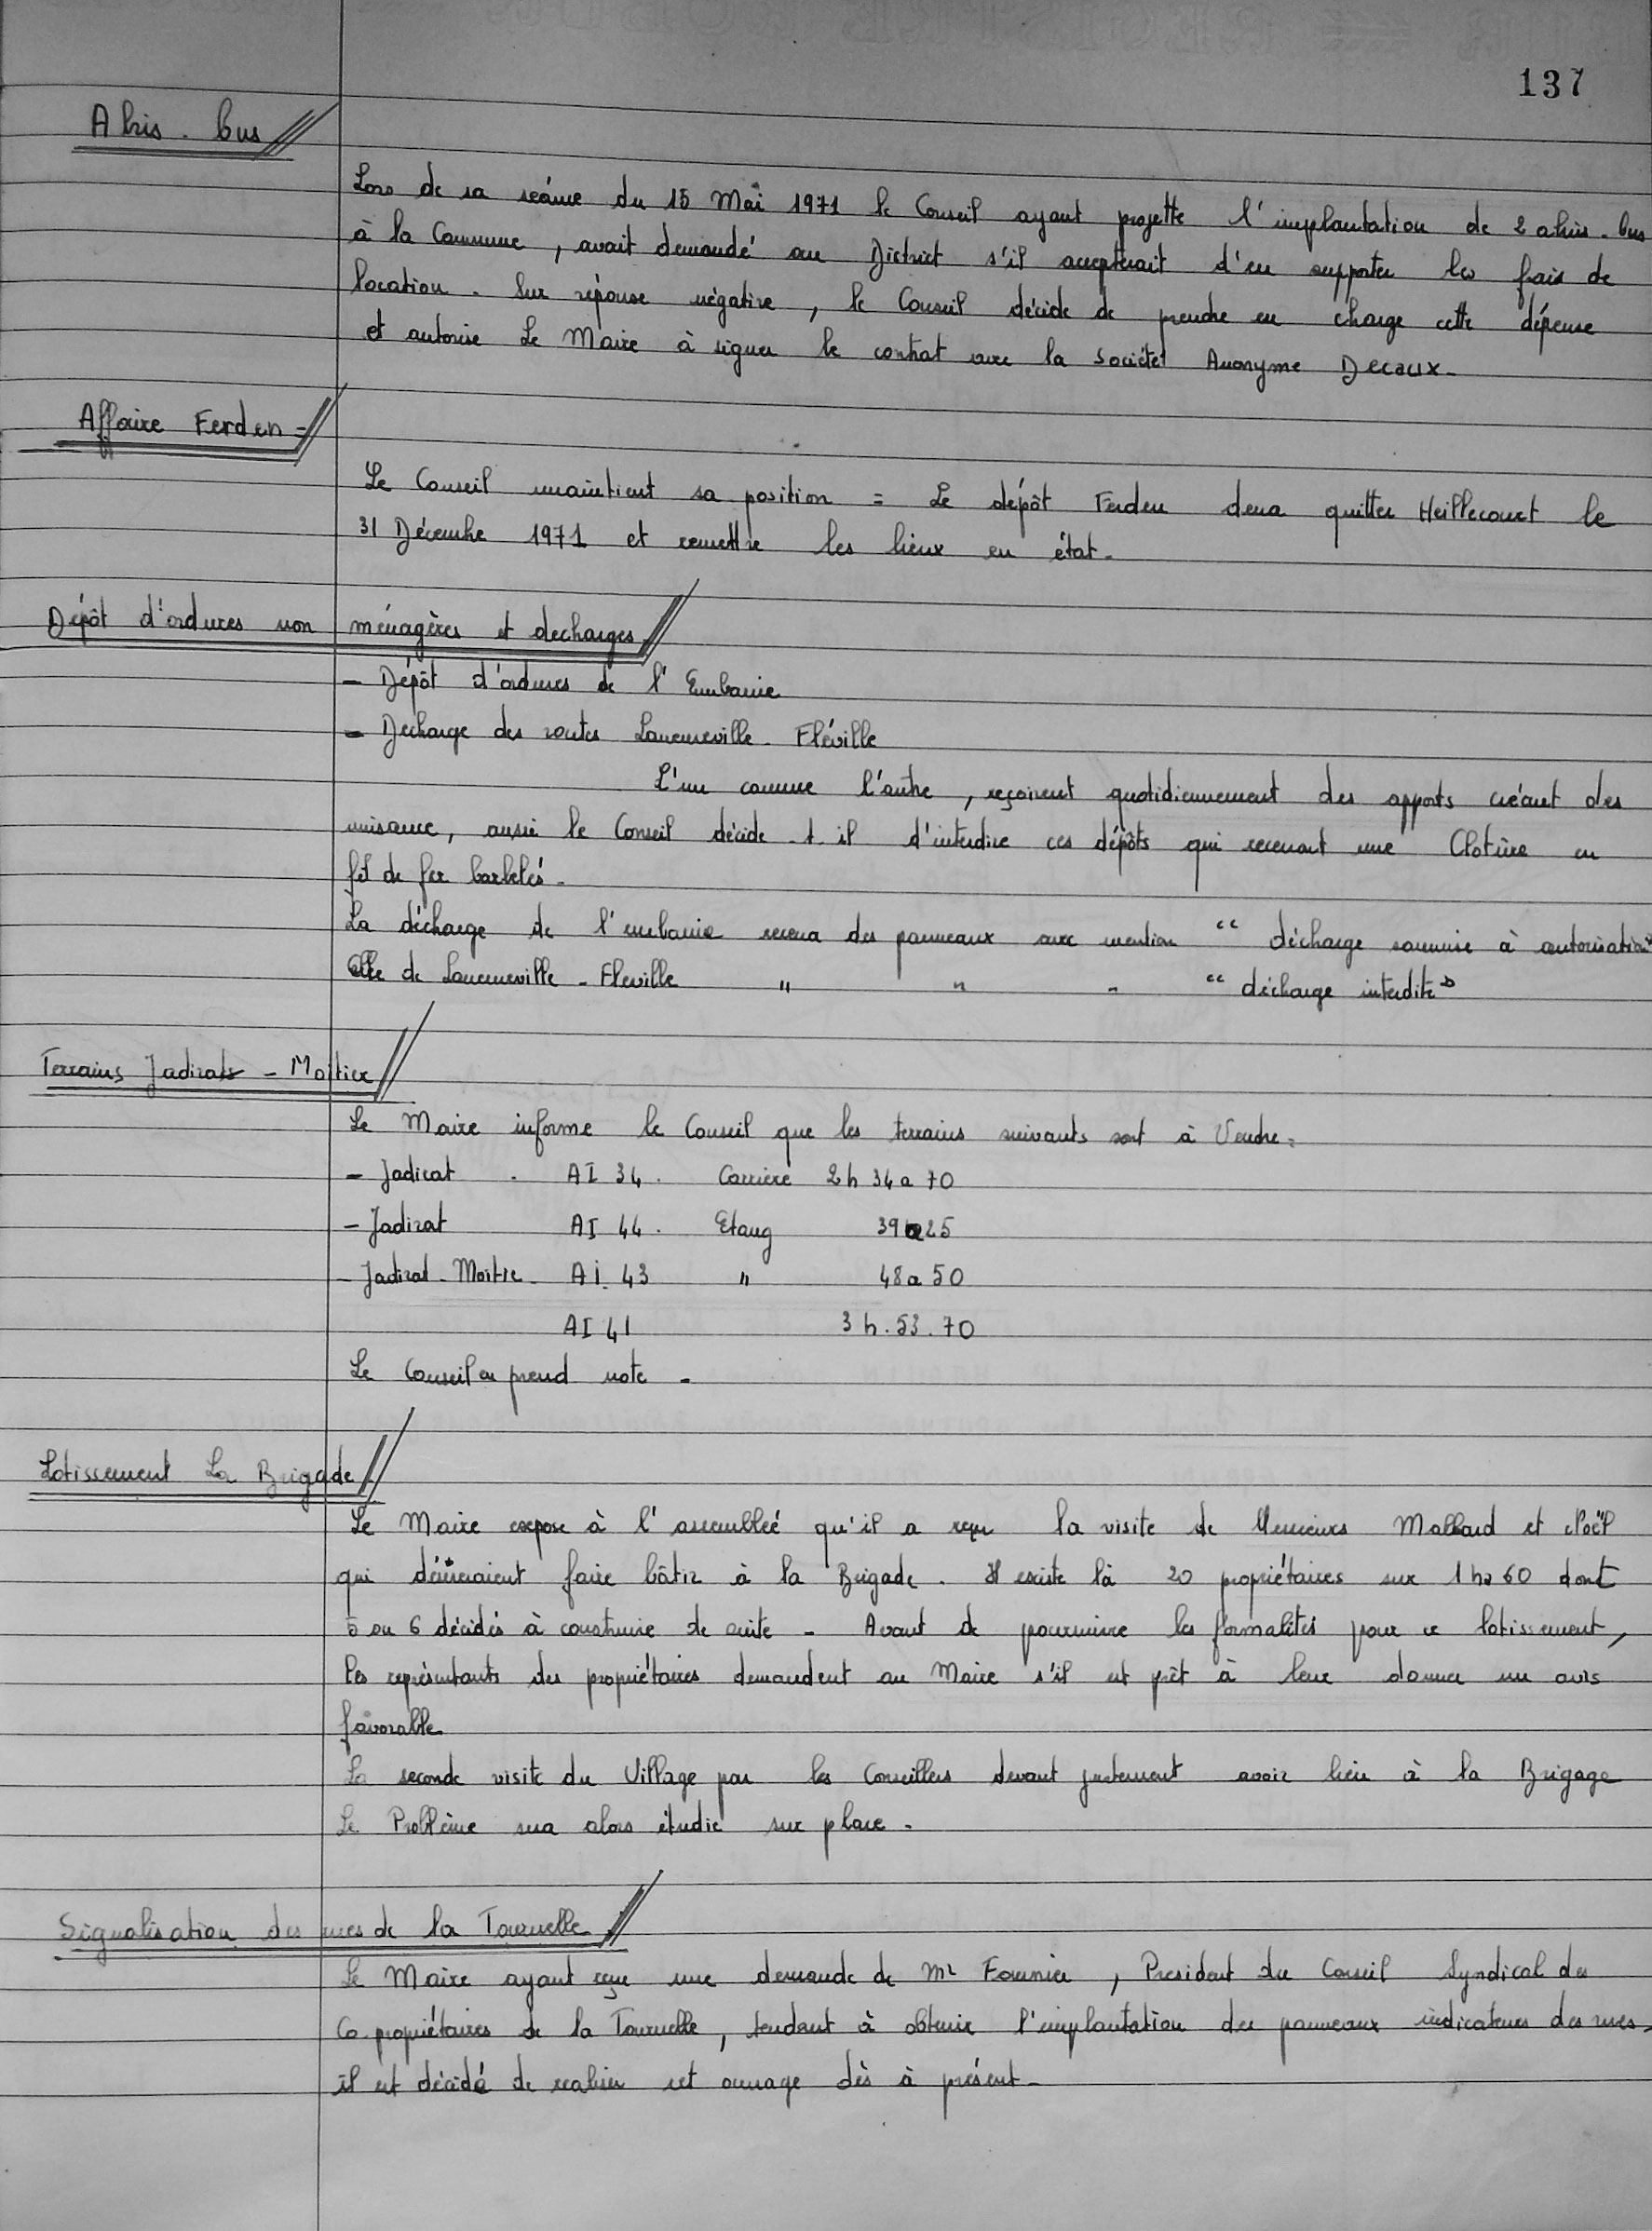 137
Abris. bus
Lors de sa séance du 15 Mai 1971 le Conseil ayant projetté l'implantation de 2 abris. bus
à la Commune, avait demandé au District s'il accepterait d'en supporter les frais de
location. Sur réponse négative, le Conseil décide de prendre en charge cette dépense
et autorise Le Maire à signer le contrat avec la Société Anonyme Decaux.
Affaire Ferden =
Le Conseil maintient sa position = Le dépôt Ferden devra quitter Heillecourt le
31 Décembre 1971 et remettre les lieux en état.
Dépôt d'ordures non ménagères et decharges
- Dépôt d'ordures de l'Embanie
- Decharge des routes Laneuveville. Fléville
L'un comme l'autre, reçoivent quotidiennement des apports créant des
nuisance, aussi le Conseil décide. t. il d'interdire ces dépôts qui recevront une Clotûre en
fil de fer barbelés.
La décharge de l'embanie recevra des panneaux avec mention " décharge soumise à autorisation"
Celle de Laneuveville - Fleville " " - " décharge interdite"
Terrains Jadirat - Moitier
Le Maire informe le Conseil que les terrains suivants sont à Vendre:
- Jadirat . AI 34. Carrière 2 h 34 a 70
- Jadirat AI 44. Etang 39 a 25
- Jadirat - Moitie - Ai. 43 " 48 a 50
AI 41 3 h. 53. 70
Le Conseil en prend note -
Lotissement La Brigade
Le Maire expose à l'assembleé qu'il a reçu la visite de Messieurs Mallard et Noël
qui désireraient faire bâtir à la Brigade. Il existe là 20 propriétaires sur 1 ha 60 dont
5 ou 6 décidés à construire de suite - Avant de poursuivre les formalités pour ce lotissement,
les représentants des propriétaires demandent au Maire s'il est prêt à leur donner un avis
favorable
La seconde visite du Village par les Conseillers devant justement avoir lieu à la Brigage
Le Problème sera alors étudié sur place.
Signalisation des rues de la Tournelle
Le Maire ayant reçu une demande de Mr Fournier, President du Conseil Syndical des
Co. propriétaires de la Tournelle, tendant à obtenir l'implantation des panneaux indicateurs des rues.
il est décidé de realiser cet ouvrage dès à présent.